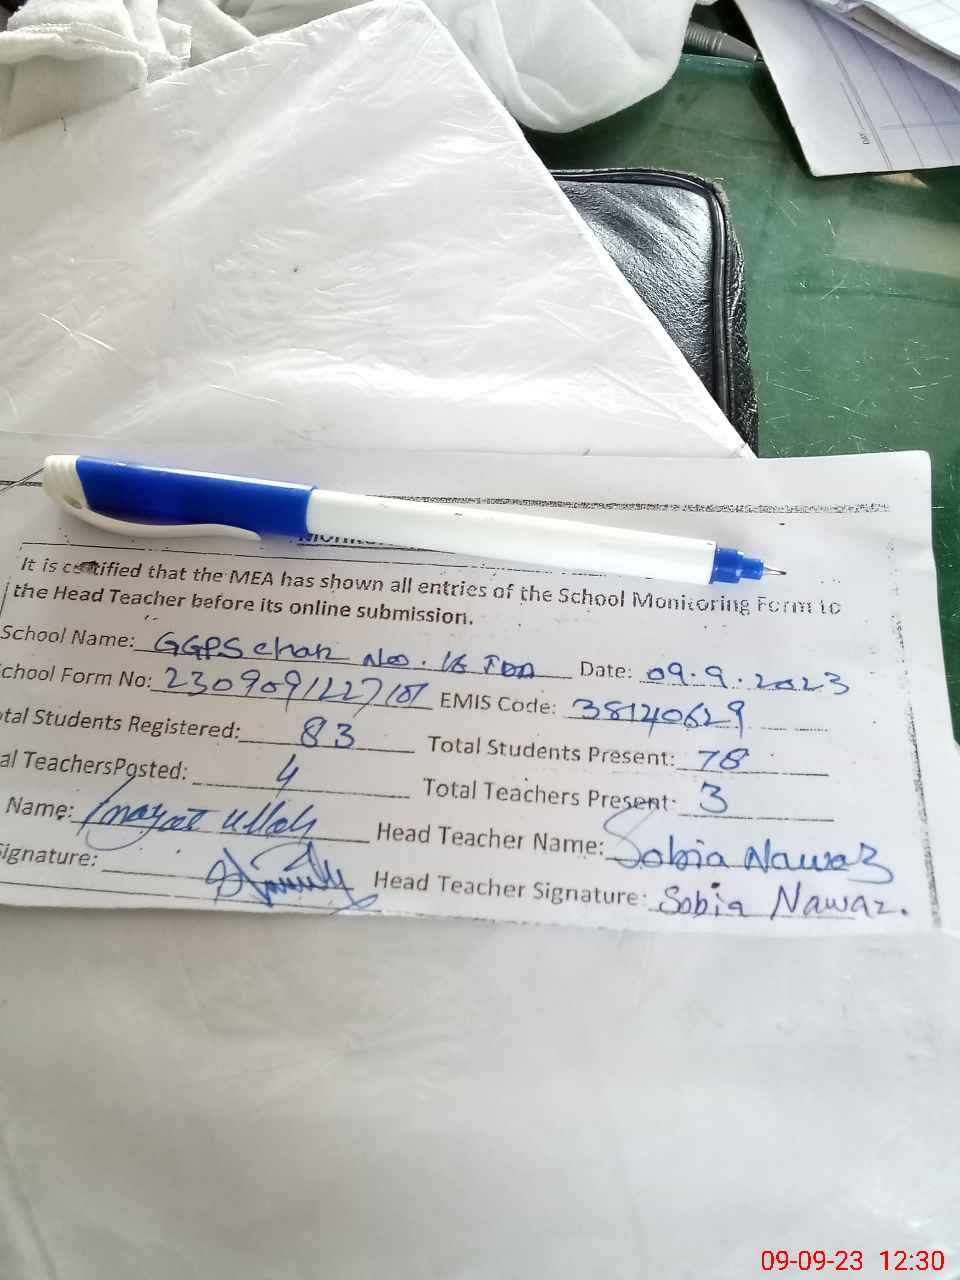 It is certified that the MEA has shown all entries of the School Monitoring Form to
the Head Teacher before its online submission.
School Name: GGPS chak No. 16 TDA Date: 09.9.2023
chool Form No: 2309091227101 EMIS Code: 38140629
otal Students Registered: 83 Total Students Present: 78
al TeachersPosted: 4 Total Teachers Present: 3
Name: Inayat Ullah Head Teacher Name: Sobia Nawaz
Signature: Head Teacher Signature: Sobia Nawaz.
09-09-23 12:30